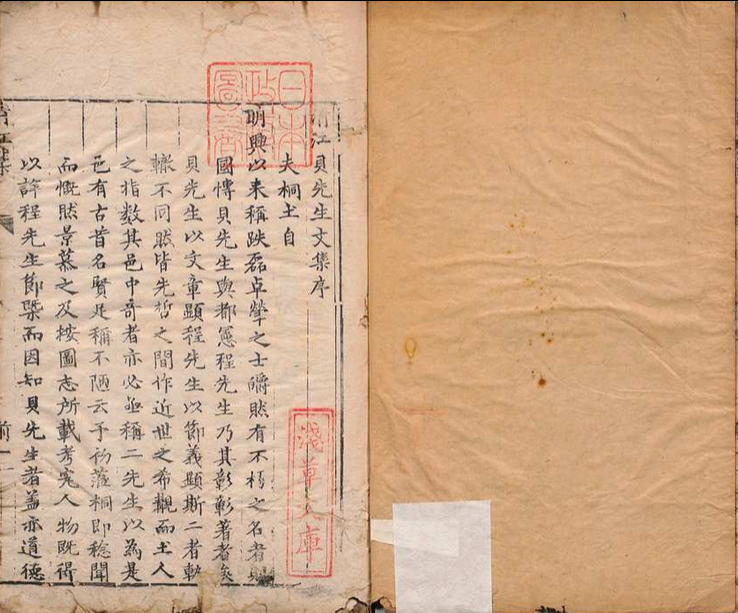 日本政府圖書
清江貝先生文集序
夫桐土自
明興以来稱跌磊卓犖之士皭然有不朽之名者
國慱貝先生與都憲程先生乃其彰彰著者矣
貝先生以文章顯程先生以節義顯斯二者軌
轍不同然皆先哲之間作近世之希覯而土人
之指数其邑中奇者亦必亟稱二先生以為是
邑有古昔名賢足稱不陋云予初蒞桐即稔聞
而慨然景慕之及按圖志所載考究人物既得
以詳程先生節槩而因知貝先生者蓋亦道德
淺草文庫